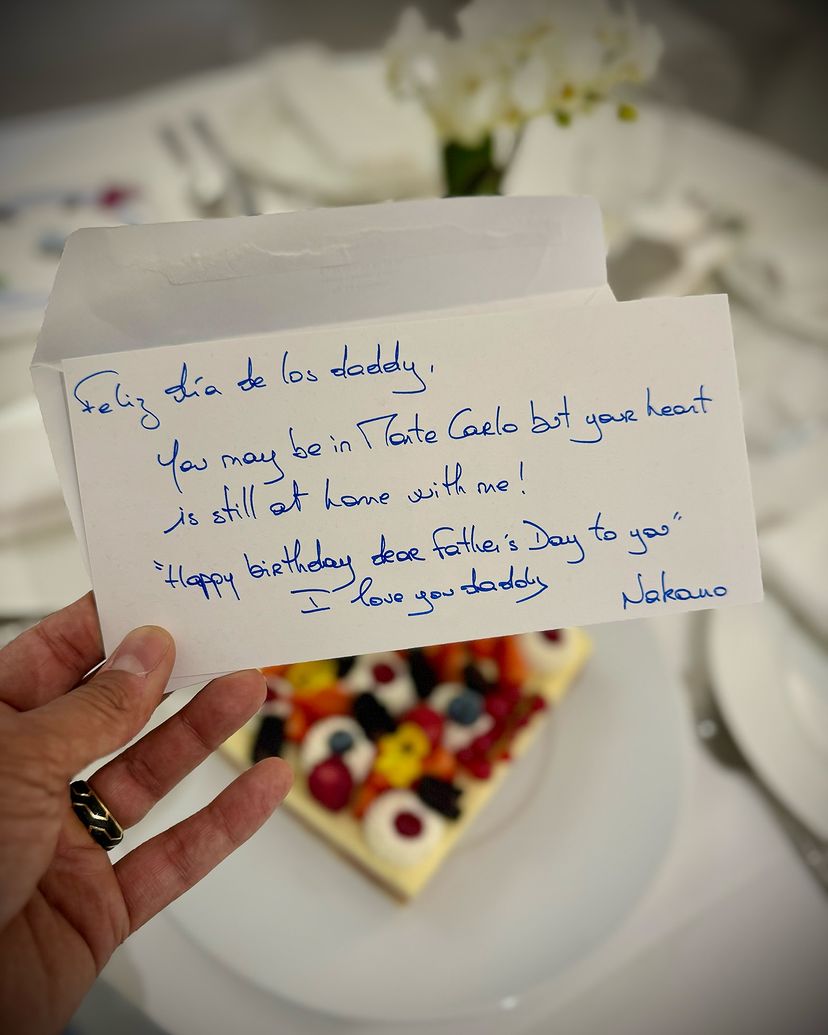 Feliz día de los daddy,
You may be in Monte Carlo but your heart
is still at home with me!
"Happy birthday dear Father's Day to you"
I love you daddy
Nakano